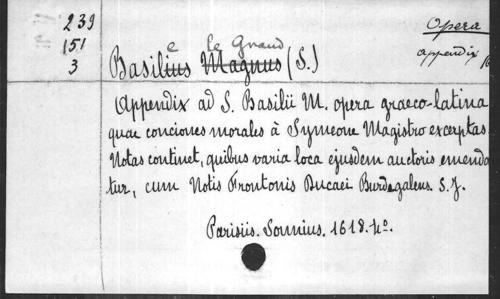 239
151
3
Opera
appendix
e le Grand
Basilius Magnus (S.)
Appendix ad S. Basilii M. opera graeco-latina
quae conciones morales à Symeone Magistro excerptas
Notas continet, quibus varia loca ejusdem auctoris emenda
tur, cum Notis Frontonis Ducaei Burdegalens. S.J.
Parisiis. Sonnius. 1618. 4o.